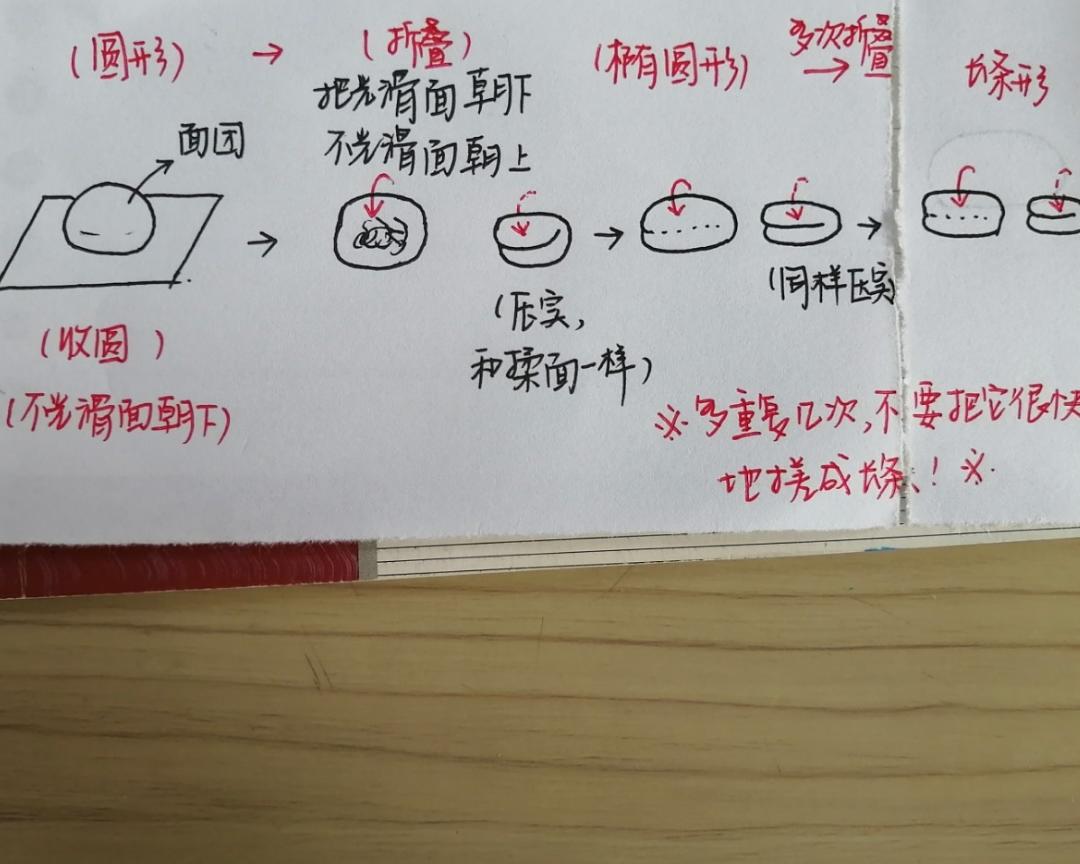 (圆形) → (折叠) (椭圆形) 多次折叠 → 长条形
把光滑面朝下
不光滑面朝上
面团
(压实,
和揉面一样)
(同样压实
(收圆)
(不光滑面朝下)
※多重复几次,不要把它很快
地搓成长条!※